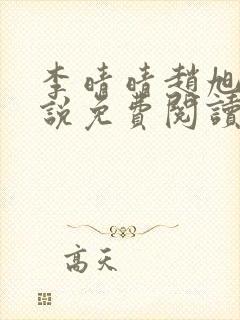 李晴晴趙旭
說免費閱讀
高天